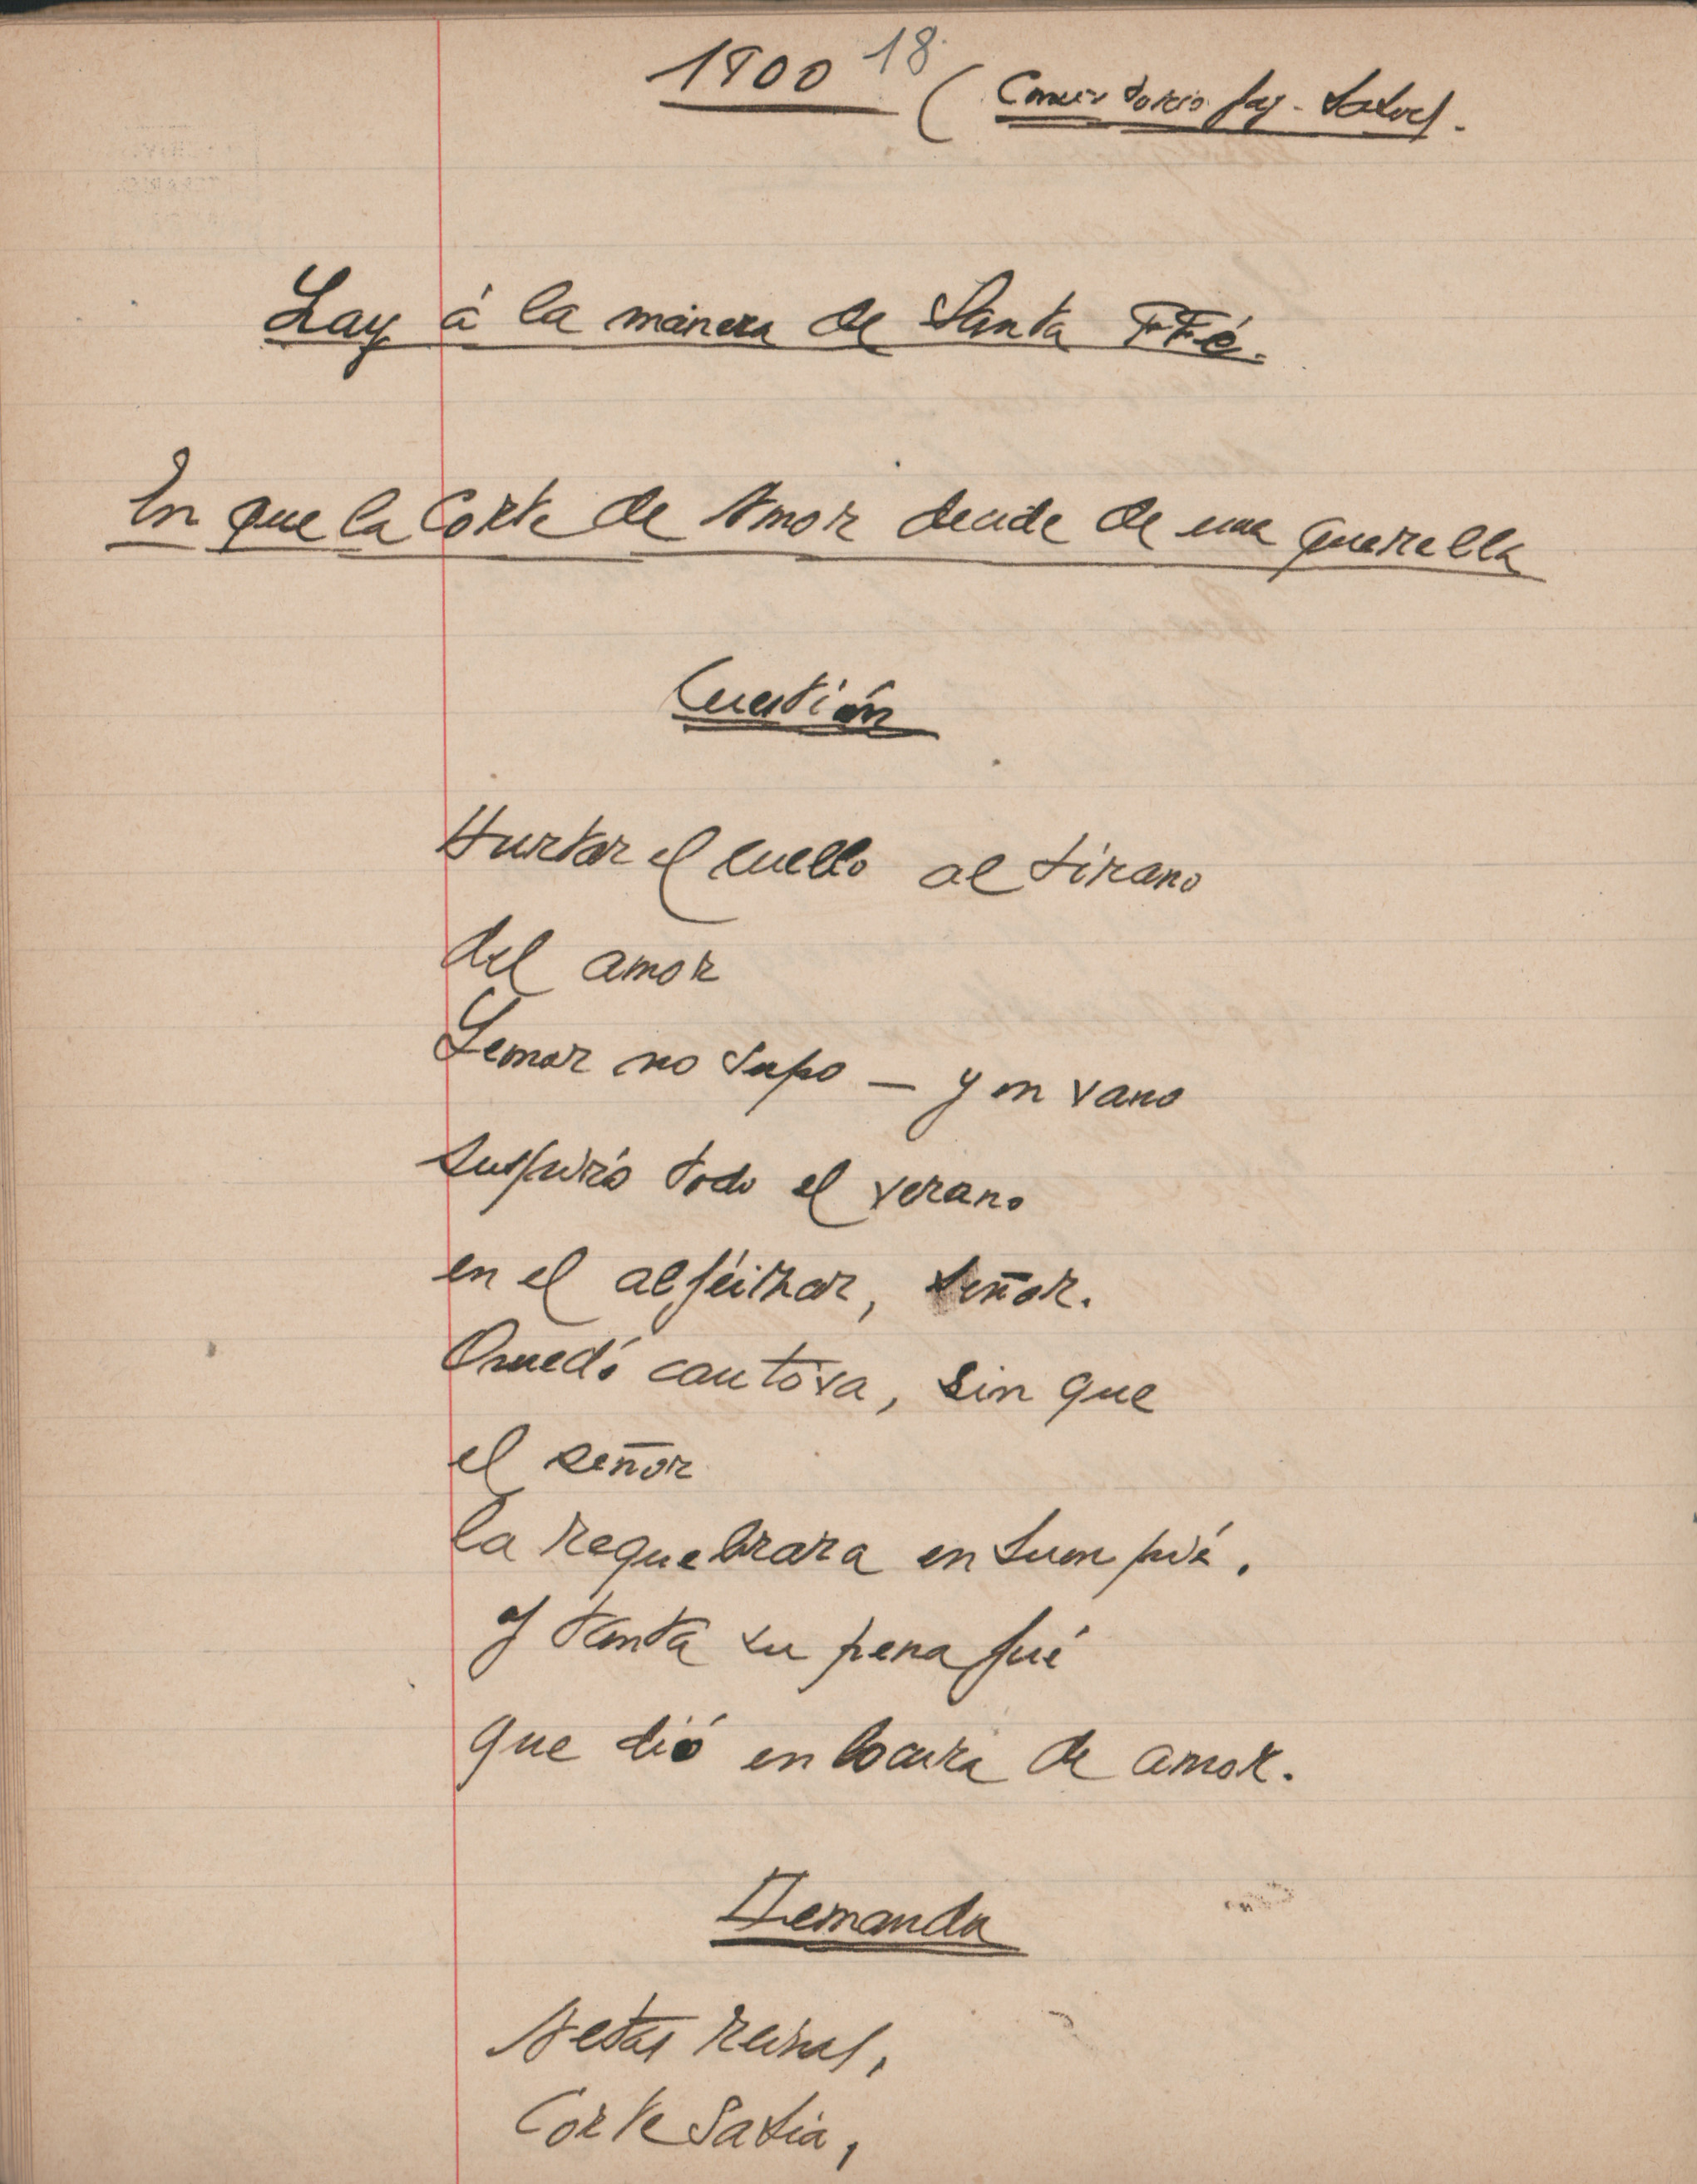 1900 18
(Consistorio Gay-Saber).
Lay á la manera de Santa Ffé.
En que la Corte de Amor decide de una querella
Cuestión
Hurtar el cuello al tirano
del amor
Lemar no supo — y en vano
suspiró todo el verano
en el alféizar, señor.
Quedó cautiva, sin que
el señor
la requebrara en su
y tanta su pena fué
que dió en locura de amor.
Demanda
reinas,
Corte Sabia,